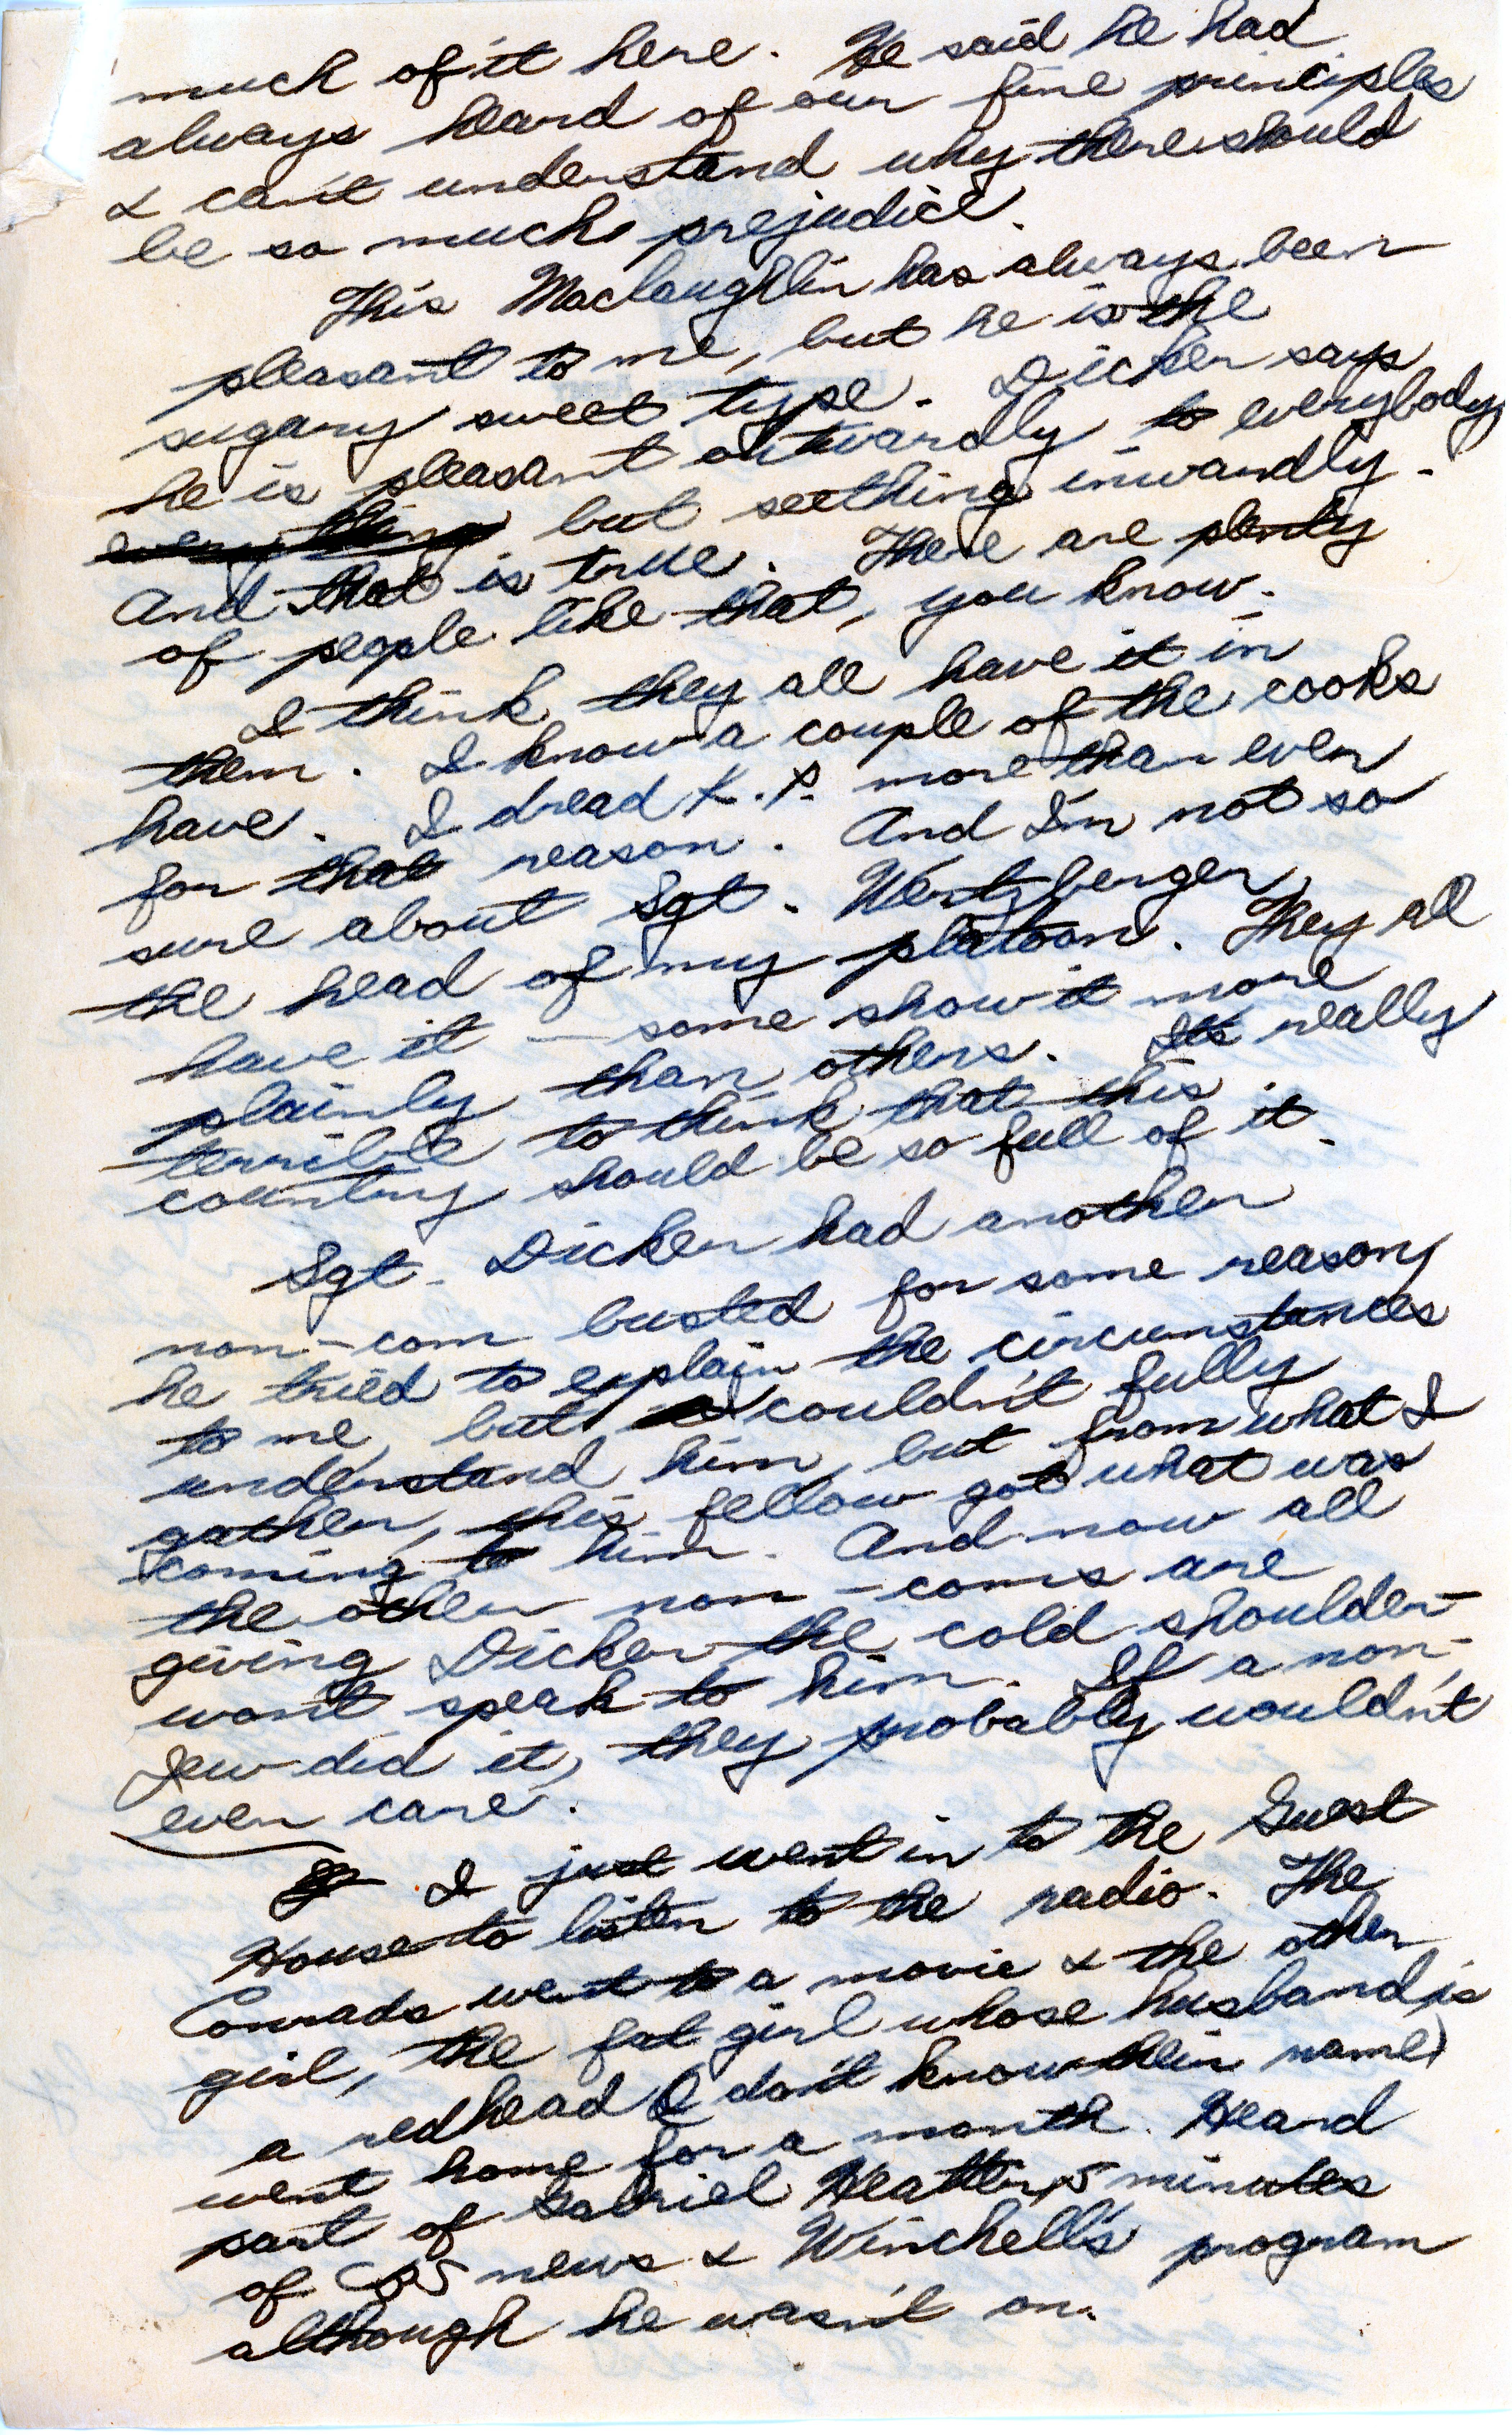 much of it here. He said he had
always heard of our fine principles
& can't understand why there should
be so much prejudice.
This Maclaughlin has always been
pleasant to me, but he is the
sugary sweet type. Dicker says
he is pleasant outwardly to everybody
everything but seething inwardly.
And that is true. There are plenty
of people like that, you know.
I think they all have it in
them. I know a couple of the cooks
have. I dread K.P. more than ever
for that reason. And I'm not so
sure about Sgt. Wertzberger,
the head of my platoon. They all
have it — some show it more
plainly than others. It's really
terrible to think that this
country should be so full of it.
Sgt. Dicker had another
non-com busted for some reason
he tried to explain the circumstances
to me, but I couldn't fully
understand him, but from what I
gather, this fellow got what was
coming to him. And now all
the other non-coms are
giving Dicker the cold shoulder -
won't speak to him. If a non-
Jew did it, they probably wouldn't
even care.
I just went in to the Guest
House to listen to the radio. The
Conrads went to a movie & the other
girl, the fat girl whose husband is
a redhead (I don't know their name)
went home for a month. Heard
part of Gabriel Heatter, 5 minutes
of CBS news & Winchell's program
although he wasn't on.